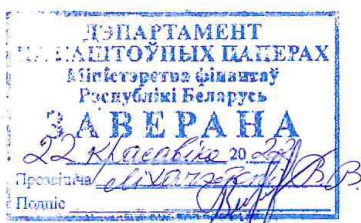 ДЭПАРТАМЕНТ
ПА КАШТОЎНЫХ ПАПЕРАХ
Міністэрства фінансаў
Рэспублікі Беларусь
ЗАВЕРАНА
22 красавіка 20
Прозвішча В.В
Подпіс